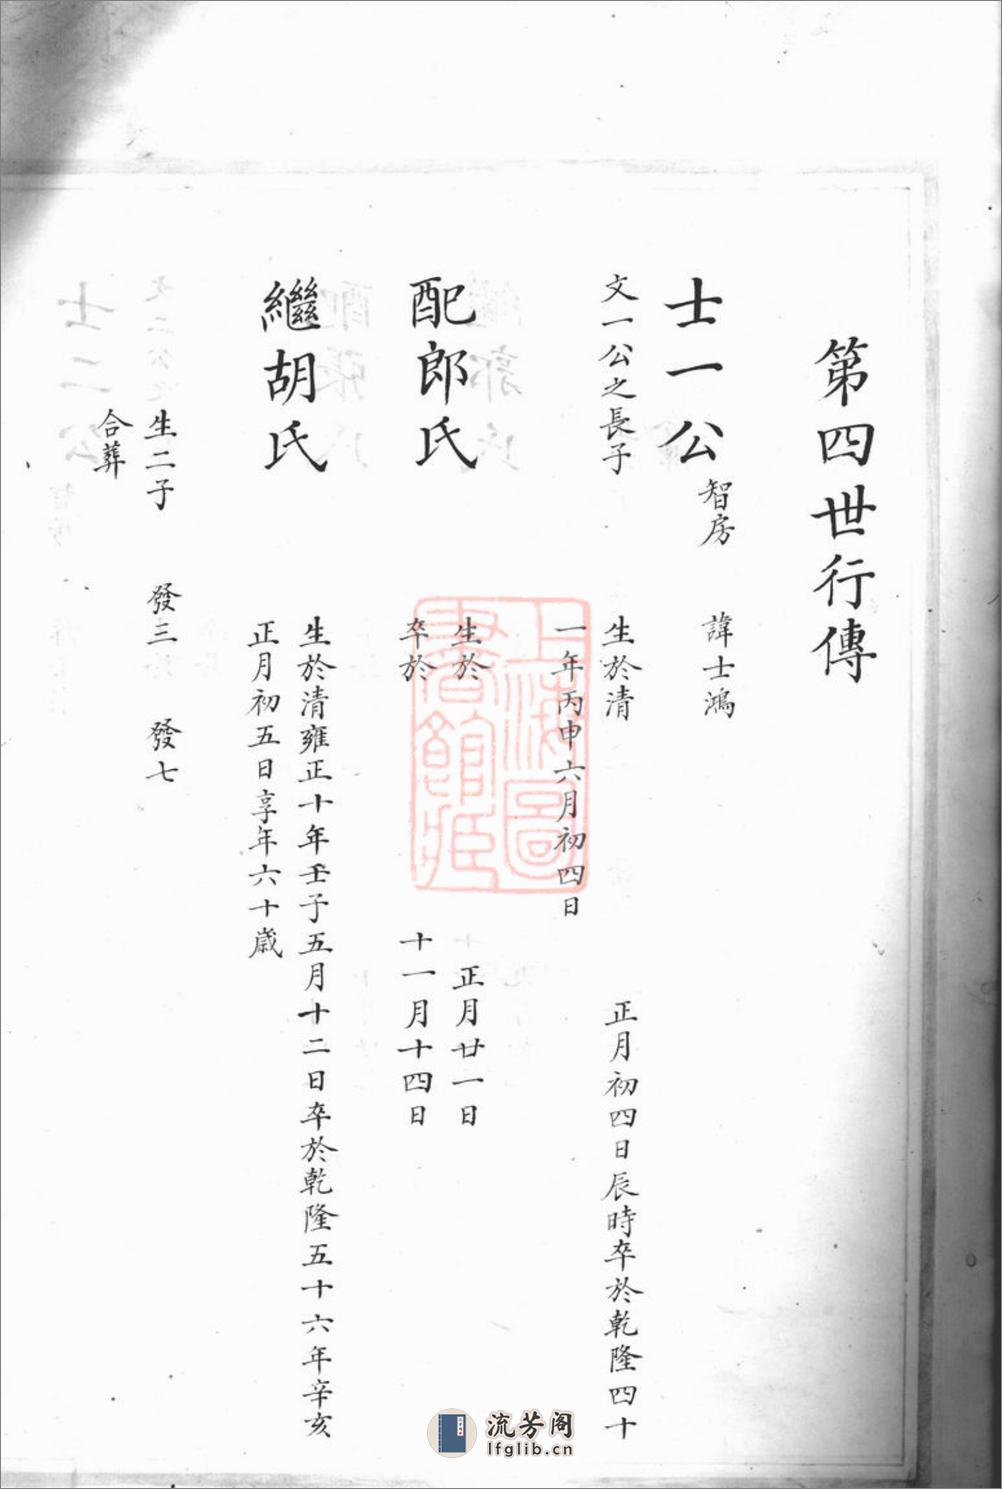 第四世行傳
士一公 智房 諱士鴻
文一公之長子 生於清 正月初四日辰時卒於乾隆四十
一年丙申六月初四日
配郎氏 生於 正月廿一日
卒於 十一月十四日
繼胡氏 生於清雍正十年壬子五月十二日卒於乾隆五十六年辛亥
正月初五日享年六十歲
生二子 發三 發七
合葬
上海圖書館藏
流芳阁
lfglib.cn